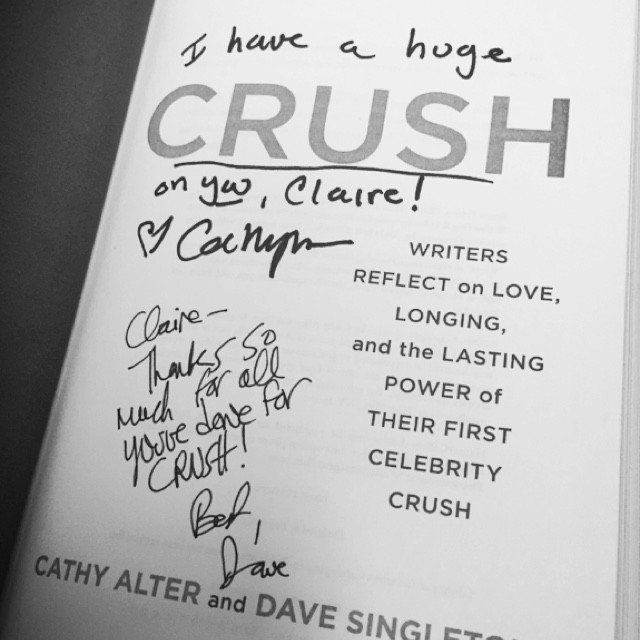 I have a huge
CRUSH
on you, Claire!
♡ Cathy
WRITERS
REFLECT on LOVE,
LONGING,
and the LASTING
POWER of
THEIR FIRST
CELEBRITY
CRUSH
Claire–
Thanks so
much for all
you've done for
CRUSH!
Best,
Dave
CATHY ALTER and DAVE SINGLETO